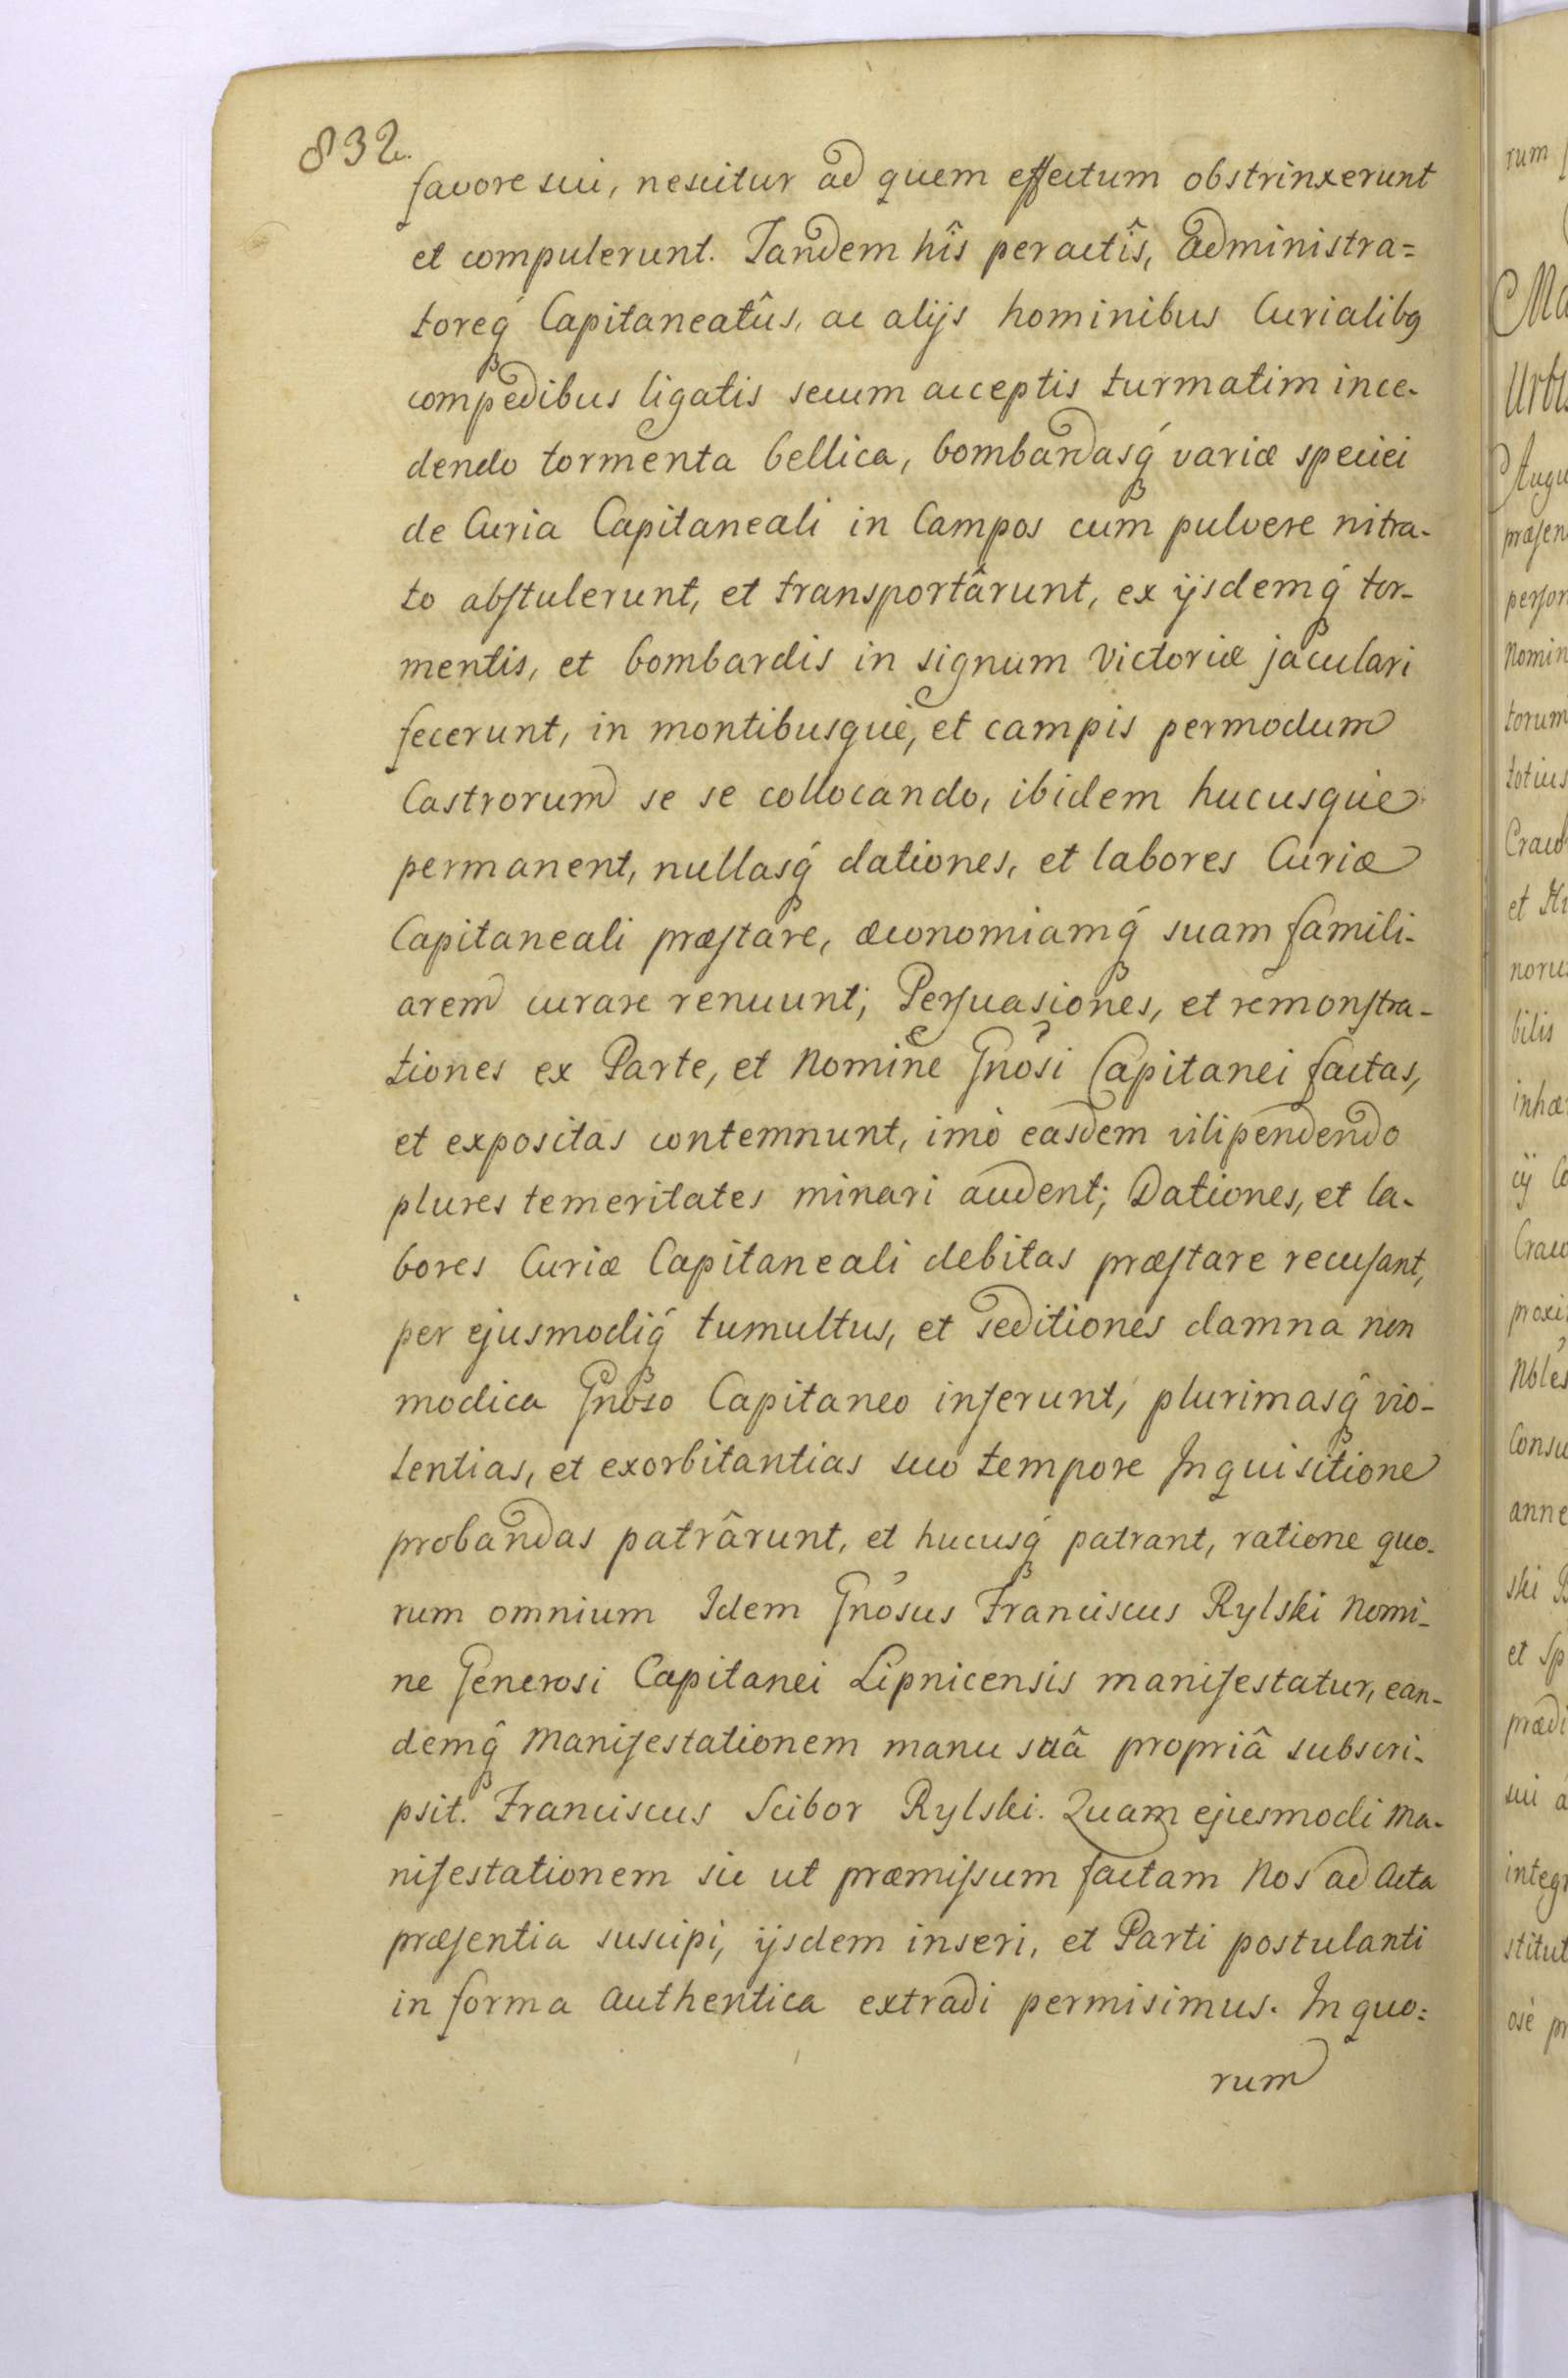 832.
favore sui, nescitur ad quem effectum obstrinxerunt
et compulerunt. Tandem hîs peractîs, Administra=
toreq́ Capitaneatûs, ac alijs hominibus Curialibꝯ
compedibus ligatis secum acceptis turmatim ince-
dendo tormenta bellica, bombardasq́ variæ speciei
de Curia Capitaneali in Campos cum pulvere nitra-
to abstulerunt, et transportârunt, ex ijsdemq́ tor-
mentis, et bombardis in signum Victoriæ jaculari
fecerunt, in montibusque, et campis permodum
Castrorum se se collocando, ibidem hucusque
permanent, nullasq́ dationes, et labores Curiæ
Capitaneali præstare, æconomiamq́ suam famili-
arem curare renuunt; Persuasiones, et remonstra-
tiones ex Parte, et Nomine Gnosi Capitanei factas,
et expositas contemnunt, imò easdem vilipendendo
plures temeritates minari audent; Dationes, et la-
bores Curiæ Capitaneali debitas præstare recusant,
per ejusmodiq́ tumultus, et seditiones damna non
modica Gnoso Capitaneo inferunt, plurimasq̂ vio-
lentias, et exorbitantias suo tempore Inquisitione
probandas patrârunt, et hucusq́ patrant, ratione quo-
rum omnium Idem Gnosus Franciscus Rylski Nomi-
ne Generosi Capitanei Lipnicensis manifestatur, ean-
demq̂ Manifestationem manu suâ propriâ subscri-
psit. Franciscus Scibor Rylski. Quam ejusmodi Ma-
nifestationem sic ut præmissum factam Nos ad Acta
præsentia suscipi, ijsdem inseri, et Parti postulanti
in forma Authentica extradi permisimus. In quo=
rum
rum
Ma
Urbi
Augu
præsen
person
Nomin
torum
totius
Crac
et
noru
bilis
inhæ
ij Co
Crac
proxi
Nblés
Consu
anne
ski
et Sp
prædi
sui a
integr
stitut
osè pr